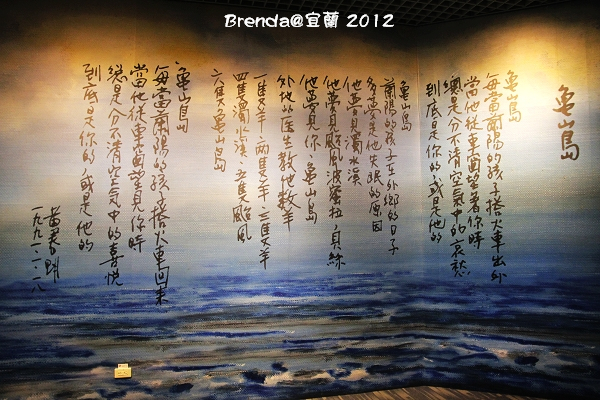 Brenda@宜蘭 2012
龜山島
龜山島
每當蘭陽的孩子搭火車出外
當他從車窗望著你時
總是分不清空氣中的哀愁
到底是你的、或是他的
龜山島
蘭陽的孩子在外鄉的日子
多夢是他失眠的原因
他夢見濁水溪
他夢見颱風波蜜拉、貝絲
他夢見你、龜山島
外地的醫生教他數羊
一隻羊、兩隻羊、三隻羊
四隻濁水溪、五隻颱風
六隻龜山島
龜山島
每當蘭陽的孩子搭火車回來
當他從車窗望見你時
總是分不清空氣中的喜悅
到底是你的、或是他的
黃春明
一九九一、一、八